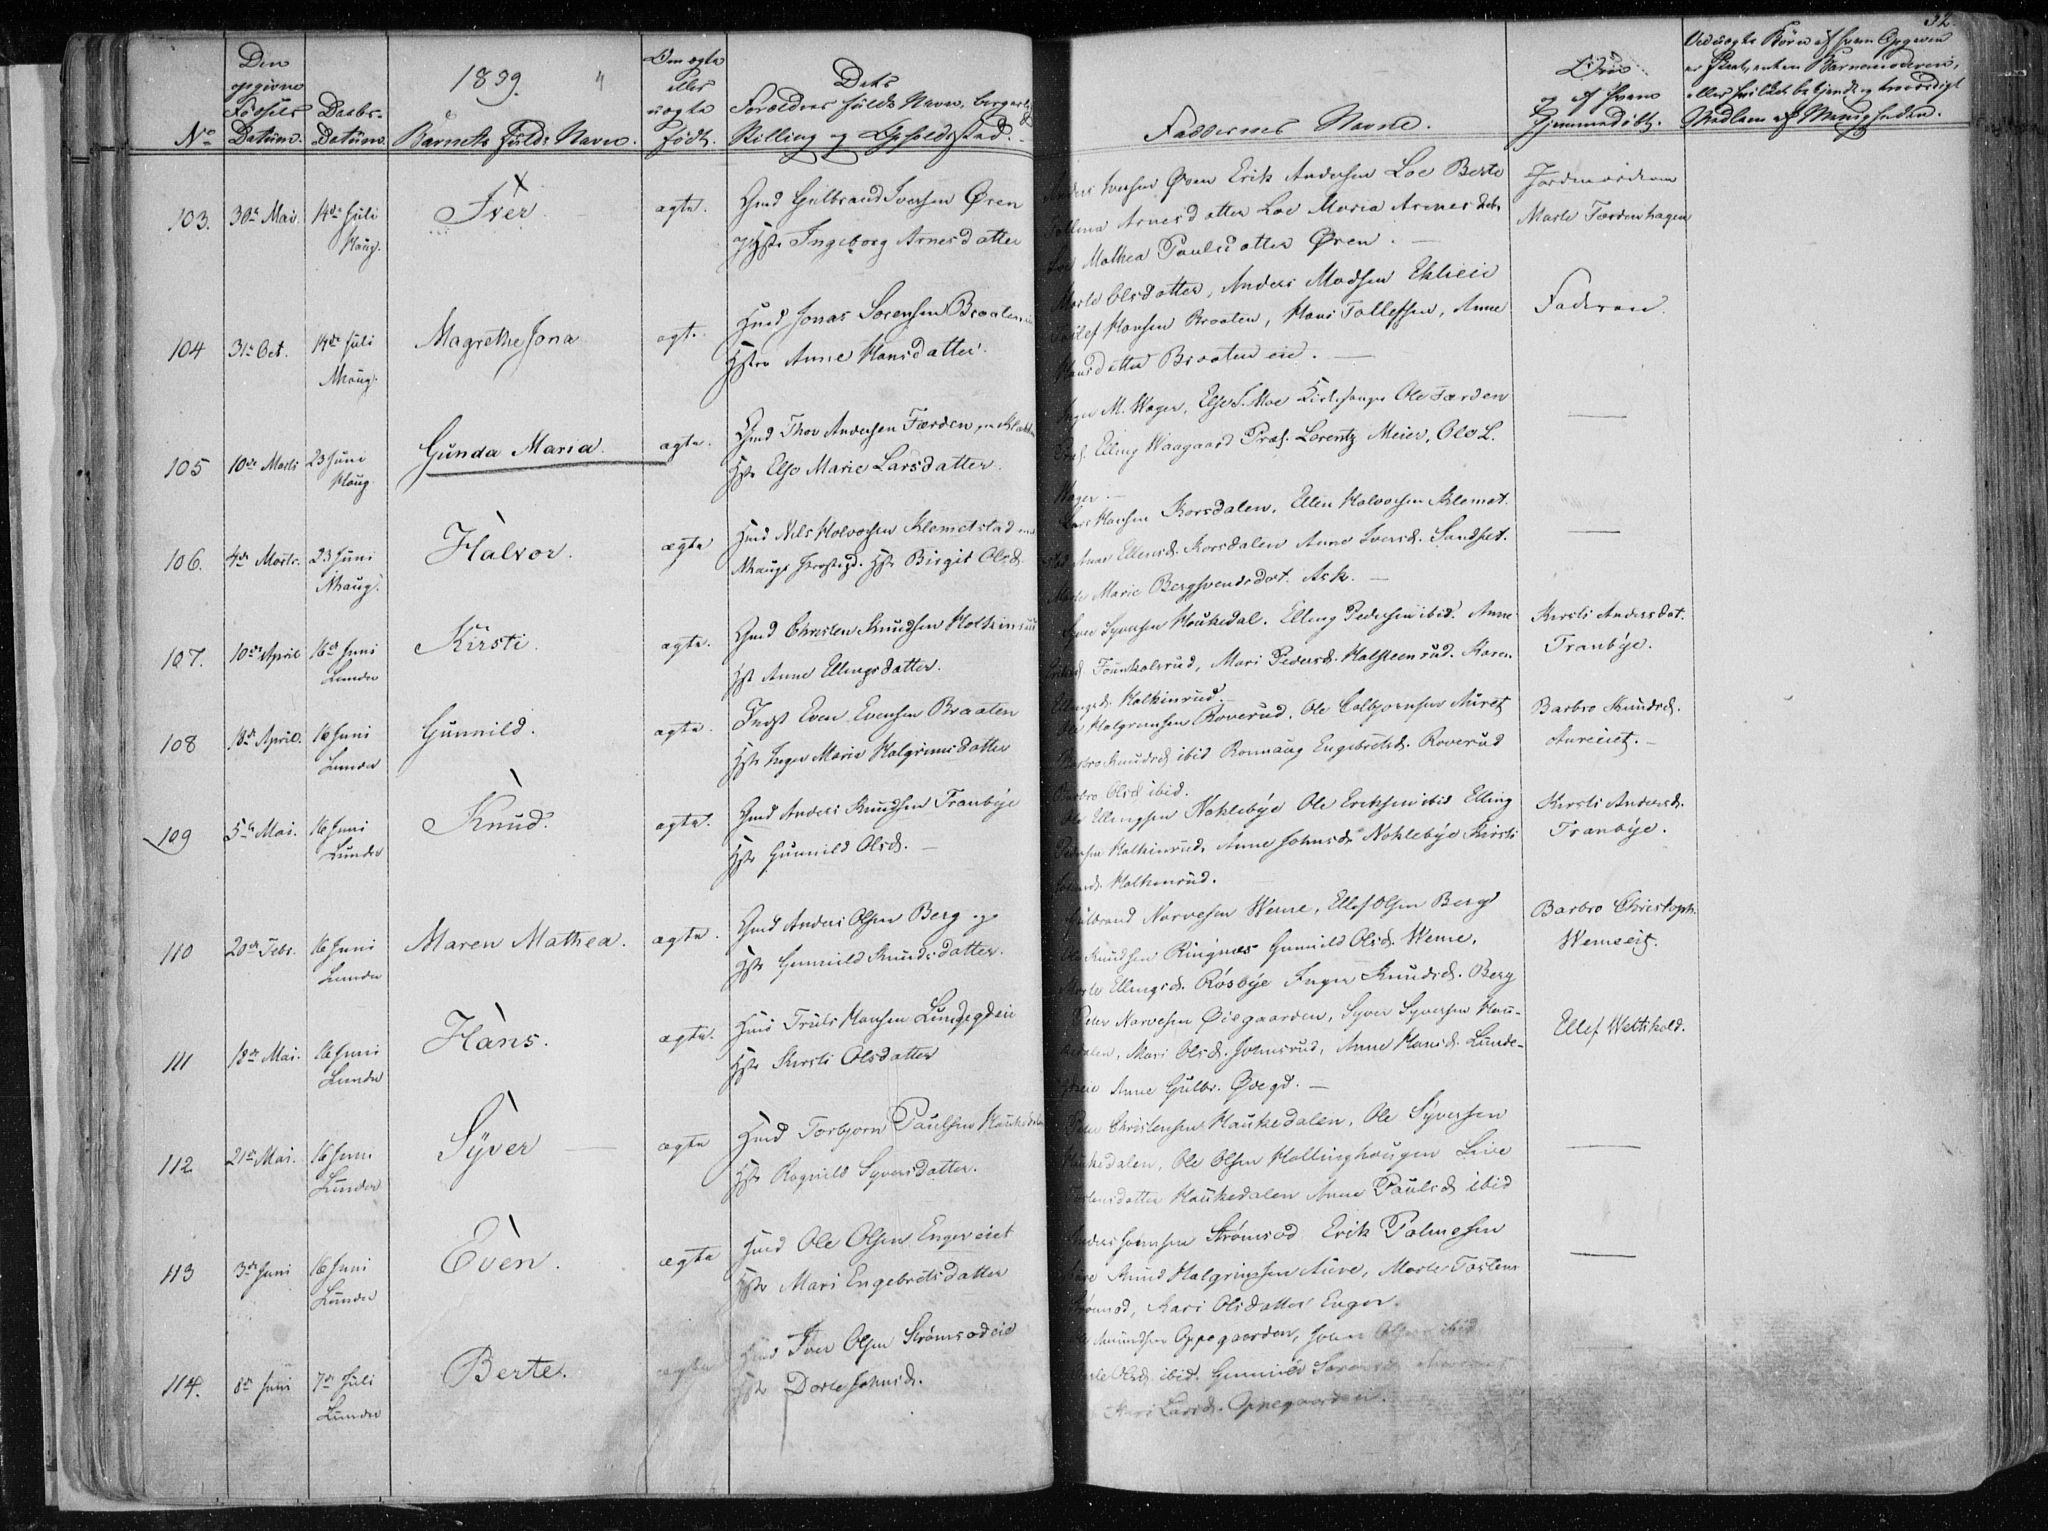 32.
1839.
No
Den opgivne Fødsels Datum.
Daabs-Datum.
Barnets fulde Navn.
Om ægte eller uægte født.
Dets Forældres fulde Navn, borgerl. Stilling og Opholdsstad.
Faddernes Navne.
Om og af hvem hjemmedöbt.
Ved uægte Børn af hvem Opgaven er skeet, enten Barnemoderen, eller hvilket bekjendt og troværdigt Medlem af Menigheden.
103. 30te Mai. 14de Juli Houg. Iver. ægte. Gmd Gulbrand Iversen Øren
og Hstr Ingeborg Arnesdatter
Anders Iversen Øren Erik Andersen Loe Berte
Arnesdatter Loe Maria Arnesdtr
Loe Mathea Paulsdatter Øren. —
Jordmoderen
Marte Færdenhagen
104 31te Oct. 14de Juli Nhaug. Magrethe Jona ægt. Huusmd Jonas Sørensen Braaten
Hstro Anne Hansdatter.
Marte Olsdatter, Anders Madsen Eklieie
Tollef Hansen Braaten, Hans Tollefsen, Anne
Hansdatter Braateneie. —
Faderen.
105 10de Marts 23 Juni Houg Gunda Maria. ægte. Gmd Thor Andersen Færden
Hstr Else Marie Larsdatter.
Inger M. Wager, Else S. Moe Kirkesanger Ole Færden
Elling Waagaard Præs. Lorentz Meier, Ole L.
Wager. —
—
106. 4de Marts. 23 Juni Nhaug. Halvor. ægte Huusmd Nils Halvorsen Klemetstad
Nhaugs Præstegd. Hstr Birgit Olsd.
Lars Hansen Korsdalen, Ellen Halvorsen Klemet-
stad Anne Ellensd. Korsdalen Anne Iversd. Sandset.
Marte Marie Bergsvendsdat. Ask. —
—
107. 10de April 16de Juni Lunder Kirsti. ægte. Gmd Christen Knudsen Halkinrud
Hst Anne Ellingsdatter.
Syver Syversen Haukedal. Elling Pedersen ibid. Anne
Mari Pedersd. Halsteenrud. Karen
Ellingsd. Halkinrud. —
Kirsti Andersdat.
Tranbye.
108 18de April. 16 Juni Lunder Gunnild. ægte. Even Evensen Braaten
Hstr Inger Marie Halgrimsdatter
Ole Halgrimsen Roverud. Ole Colbjørnsen Auret
Barbro Knudsd. ibid Ronnaug Engebretsd. Roverud
Barbro Olsd. ibid.
Barbro Knudsd.
Aureiet. —
109 5te Mai. 16 Juni Lunder Knud. ægte. Gmd Anders Knudsen Tranbye
Hstr Gunnild Olsd. —
Ole Ellingsen Noklebye Ole Eriksen ibid Elling
Pedersen Halkinrud, Anne Johnsd. Noklebye Kirsti
Halkinrud.
Kirsti Andersd.
Tranbye.
110 20de Febr. 16 Juni Lunder Maren Mathea. ægte. Gmd Anders Olsen Berg og
Hstr Gunnild Knudsdatter.
Gulbrand Narvesen Werne, Ellef Olsen Berg
Ole Knudsen Ringnes Gunnild Olsd. Werne.
Marte Ellingsd. Rosbye Inger Knudsd. Berg
Barbro Christoph.
Werneeiet.
111 18de Mai. 16 Juni Lunder Hans. ægte. Huusmd Truls Hansen Lundeeie
Hstr Kirsti Olsdatter
Peder Narvesen Öiegaarden, Syver Syversen Hau-
kedalen, Mari Olsd. Johnsrud, Anne Hansd. Lunde-
Anne Gulbr. Øiegd. —
Ellef Wettihold.
112 21de Mai. 16 Juni Lunder Syver — ægte Huusmd Torbjørn Paulsen Haukedalen
Hstr Ragnild Syversdatter.
Peder Christensen Haukedalen, Ole Syversen
Haukedalen, Ole Olsen Hallinghougen Live
Haukedalen Anne Paulsd. ibid
—
113 3de Juni 16 Juni Lunder Even. ægte Huusmd Ole Olsen Engereiet
Hstr Mari Engebretsdatter
Anders Strømsod Erik Palmesen
Amund Halgrimsen Auve, Marte Torstens
Strømsod, Kari Olsdatter Enger.
—
114. 8de Juni 7de Juli Lunder Berte. ægte Huusmd Iver Olsen Strømsodeie
Hstr Dorte Johnsd.
Amundsen Oppegaarden, ibid
Olsd. ibid. Gunnild
Kari Larsd. Oppegaarden.